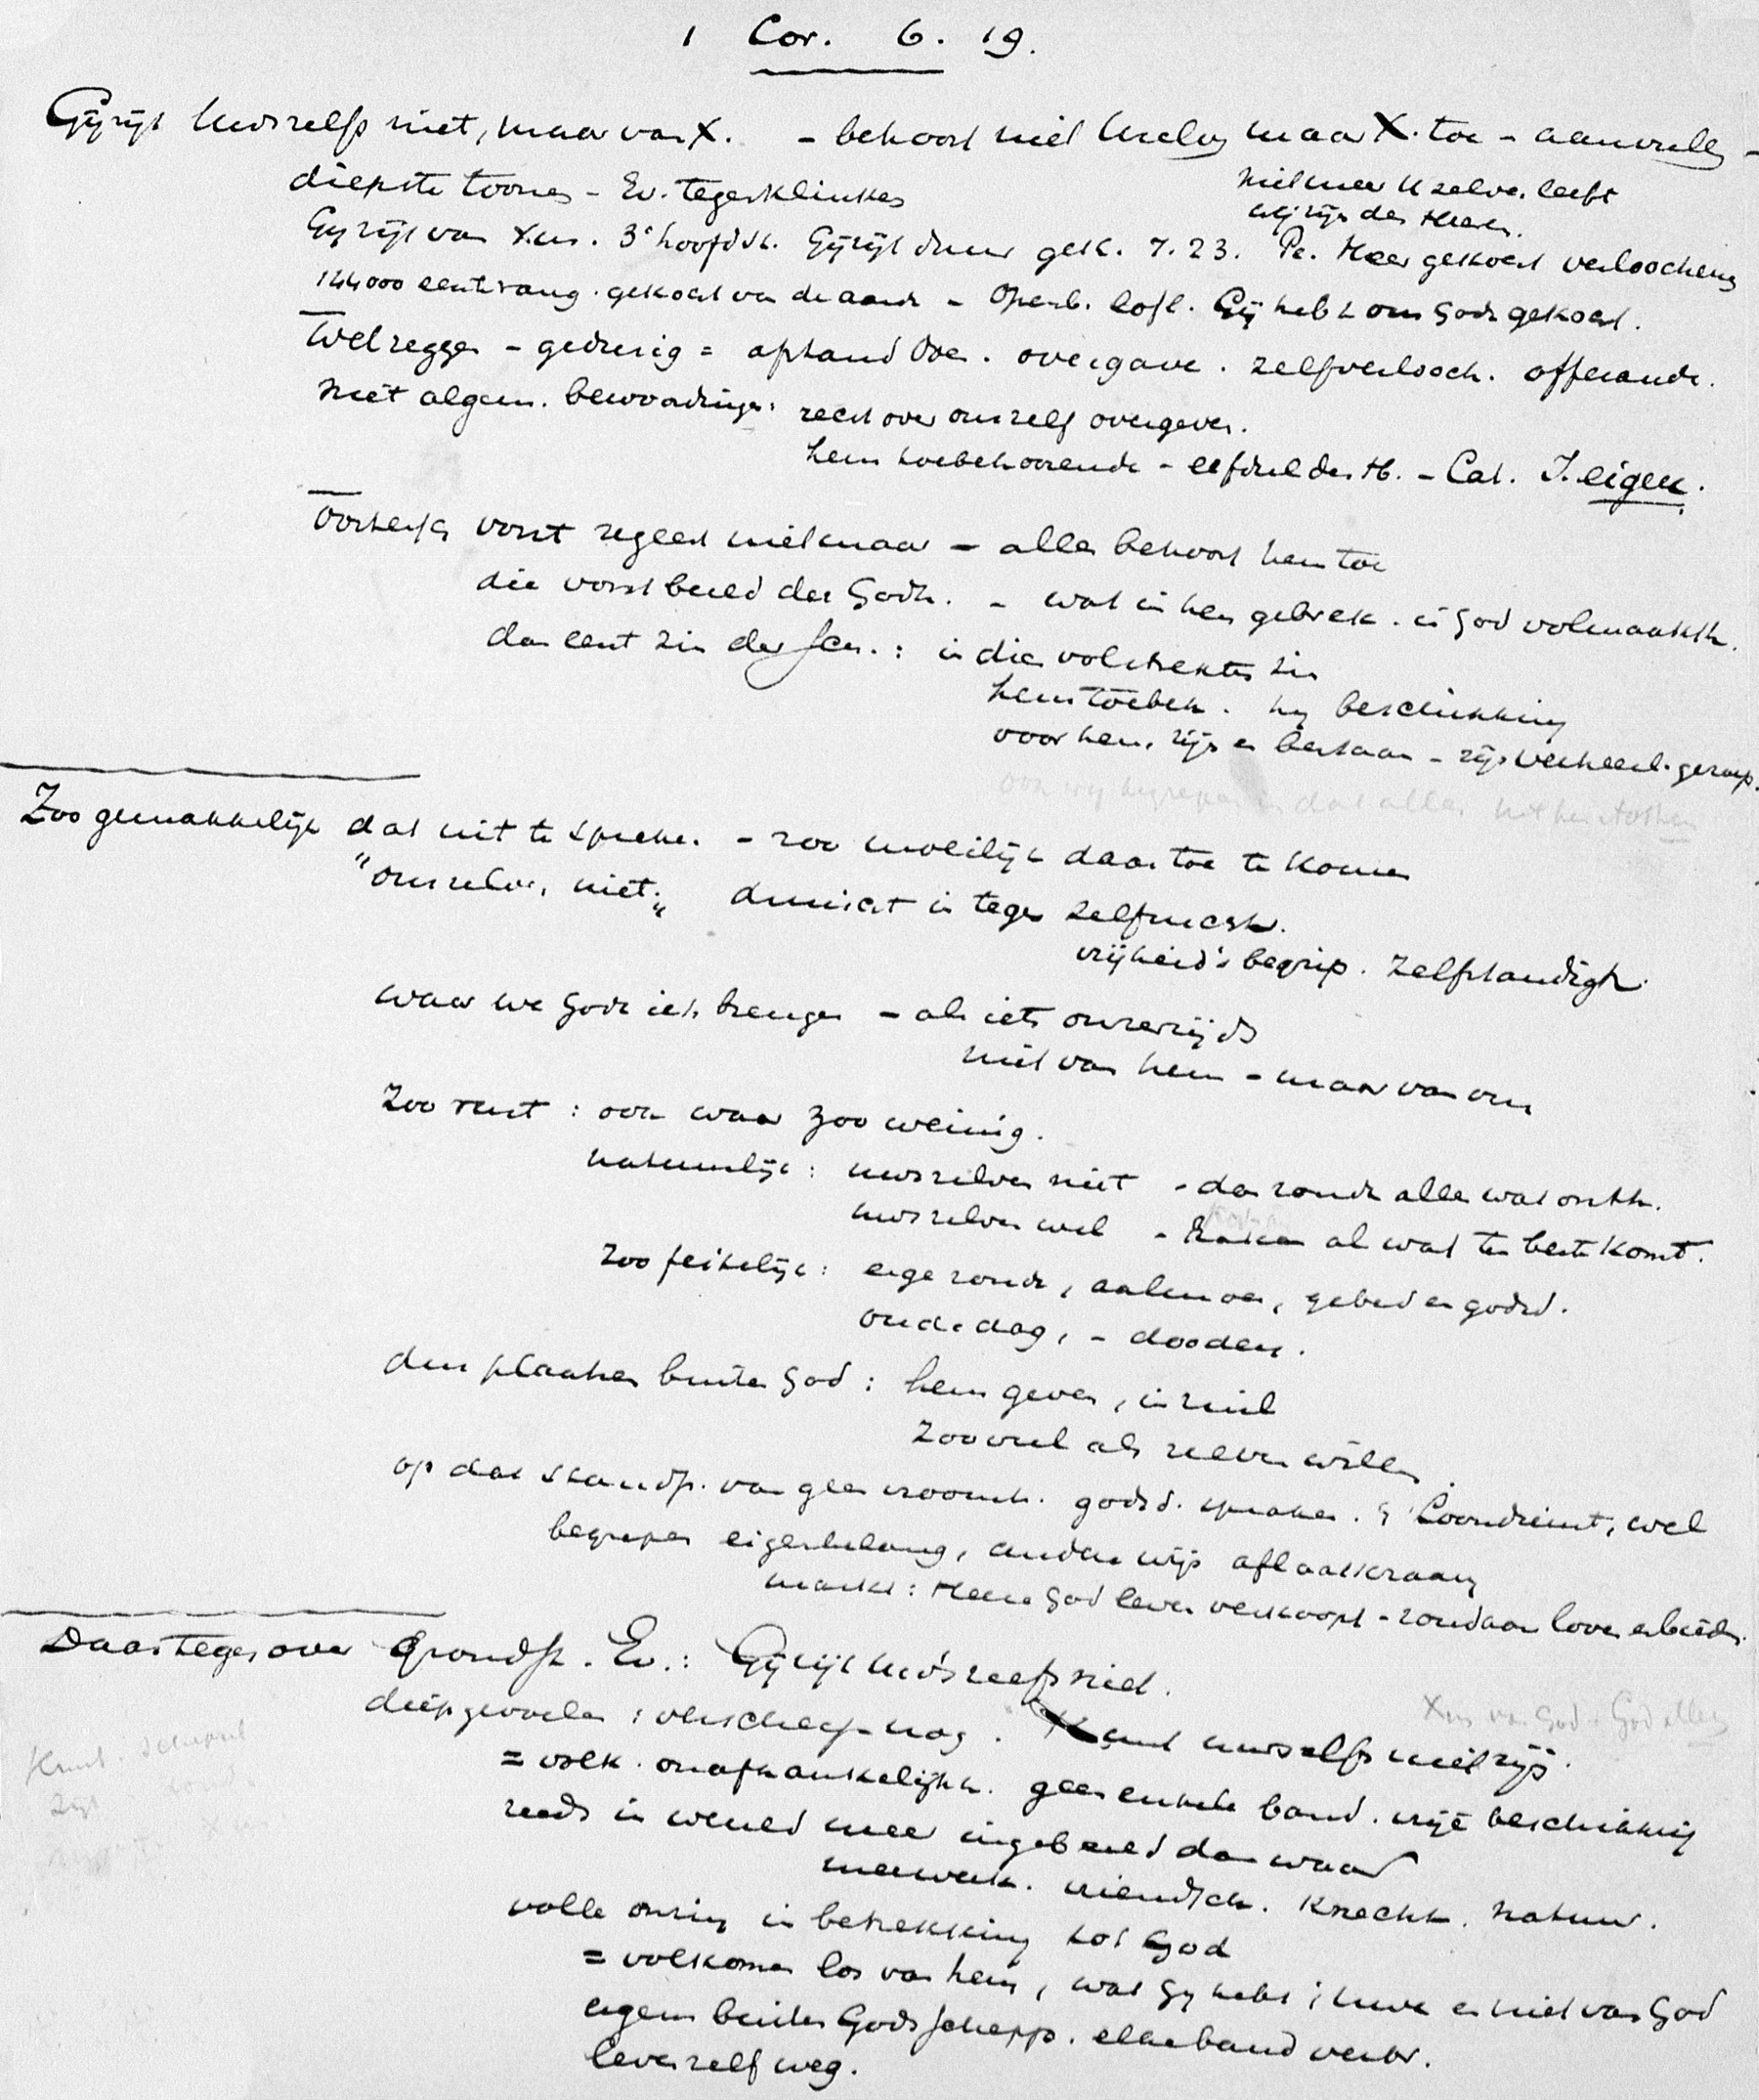 1 Cor. 6. 19.
Gij zijt Uws zelfs niet, maar van X. - behoort niet Uzelv maar X. toe - aanvulle -
niet meer U zelve. leeft
wij zijn des Heeren.
diepste toonen - Ev. tegenklinken
Gij zijt van Xus. 3e hoofdst. Gij zijt duur gek. 7.23. Pe. Heer gekocht verloochens
144000 gekocht van de aarde - Openb. lofl. Gij hebt ons Gode gekocht.
Twelzeggen - gedurig = afstand doen. overgave. zelfverlooch. offerande.
Niet algem. bewoordingen: recht over onszelf overgeven.
hem toebehoorende - erfdeel des H. - Cat. J. eigen.
Oostersch vorst regeert niet maar - alles behoort hem toe
die vorst beeld der Godh. - wat in hem gebrek. is God volmaakth.
dan eerst zin der Scr.: in dien volstrekten zin
hem toebeh. hij beschikking
voor hem. zijn en bestaan - zijn verheerl. geroep.
ook wij begrepen in dat alles uit hem
Zoo gemakkelijk dat uit te spreken. - zoo moeilijk daar toe te komen
"onszelven niet" druischt in tegen zelfzucht.
vrijheid's begrip. Zelfstandigh.
waar we Gode iets brengen - als iets onzerzijds
niet van hem - maar van ons
Zoo rust: ook waar zoo weinig.
natuurlijk: uws zelven niet - dan zonde alles wat onth.
uws zelven wel - al wat ten beste komt.
Zoo feitelijk: eige zonde, aalmoes, gebed en godsd.
oude dag, - dooden.
dus plaatsen buiten God: hem geven, in ruil
Zooveel als zelven willen.
op dat standp. van geen vroomh. godsd. sprake. Loondienst, wel
begrepen eigenbelang, andere wijs aflaatkraam
markt: Heere God leven verkoopt - zondaar loven en bieden.
Daartegenover Grondst. Ev.: Gij zijt Uws zelfs niet.
Xus van God - God alles
diep gevoelen: verscherp nog. Kunt uws zelfs niet zijn.
= volk. onafhankelijkh. geen enkele band. vrije beschikking
reeds in wereld meer ingebeeld dan waar
meerverk. vriendsch. knecht. natuur.
volle onzin in betrekking tot God
= volkomen los van hem, wat gij hebt: uwe en niet van God
eigens buiten Gods schepp. elke band verbr.
leven zelf weg.
Kunt. schepsel
zijt